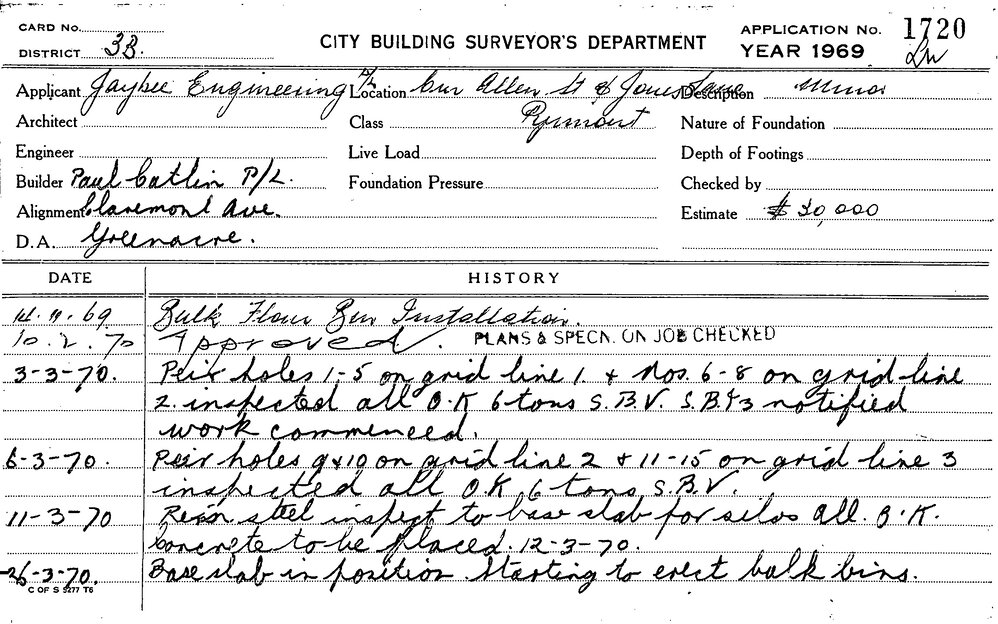 CARD No.
DISTRICT 3B.
CITY BUILDING SURVEYOR'S DEPARTMENT
APPLICATION No. 1720
YEAR 1969
Applicant Jaybee Engineering P/L Location Cnr Allen St & Jones Lane Description Minor
Architect Class Pyrmont Nature of Foundation
Engineer Live Load Depth of Footings
Builder Paul Catlin P/L. Foundation Pressure Checked by
Alignment Claremont Ave. Estimate $ 30,000
D.A. Greenacre.
DATE HISTORY
14.11.69 Bulk Flour Bin Installation.
10.2.70 Approved. PLANS & SPECN. ON JOB CHECKED
3-3-70. Peir holes 1-5 on grid line 1. & Nos. 6-8 on grid line
2. inspected all O.K 6 tons S.B.V. S.B.&3 notified
work commenced.
6-3-70. Peir holes 9 & 10 on grid line 2 & 11-15 on grid line 3
inspected all O.K 6 tons S.B.V.
11-3-70 steel inspect to base slab for silos all. O.K.
Concrete to be placed. 12-3-70.
26-3-70. Base slab in position starting to erect bulk bins.
C OF S 5277 T6